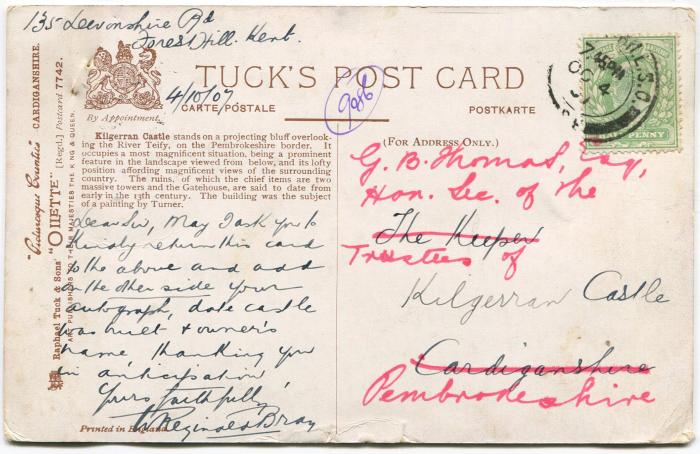 135 Devonshire Rd
Forest Hill. Kent.
4/10/07
TUCK'S POST CARD
CARTE POSTALE
POSTKARTE
By Appointment.
(FOR ADDRESS ONLY.)
Kilgerran Castle stands on a projecting bluff overlook-
ing the River Teify, on the Pembrokeshire border. It
occupies a most magnificent situation, being a prominent
feature in the landscape viewed from below, and its lofty
position affording magnificent views of the surrounding
country. The ruins, of which the chief items are two
massive towers and the Gatehouse, are said to date from
early in the 13th century. The building was the subject
of a painting by Turner.
Dear Sir, May I ask you to
kindly return this card
to the above and add
on the other side your
autograph, date castle
was built & owner's
name thanking you
in anticipation
Yours faithfully
W Reginald Bray
Printed in England.
"Picturesque Counties" CARDIGANSHIRE.
Raphael Tuck & Sons' "OILETTE" [Regd.] Postcard 7742.
ART PUBLISHERS TO THEIR MAJESTIES THE KING & QUEEN.
G. B. Thomas, Esq,
Hon. Sec. of the
The Keeper
Trustees of
Kilgerran Castle
Cardiganshire
Pembrokeshire
S.O.
OC 4
HALF PENNY